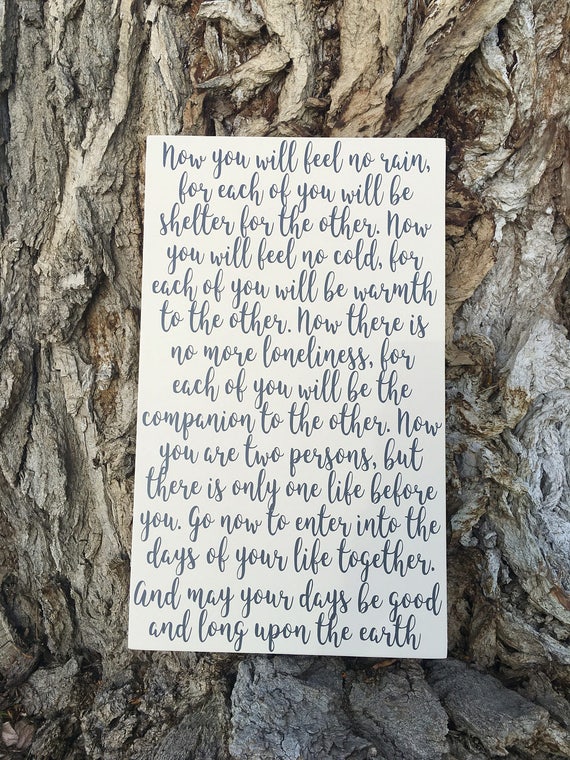 Now you will feel no rain,
for each of you will be
shelter for the other. Now
you will feel no cold, for
each of you will be warmth
to the other. Now there is
no more loneliness, for
each of you will be the
companion to the other. Now
you are two persons, but
there is only one life before
you. Go now to enter into the
days of your life together.
And may your days be good
and long upon the earth